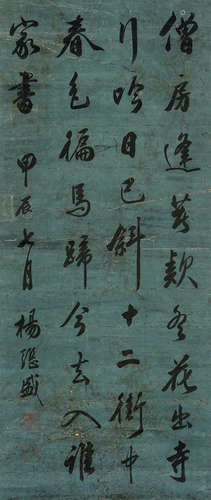 僧房逢著款冬花出寺
行吟日已斜十二街中
春色徧馬蹄今去入誰
家書 甲辰七月 楊繼盛